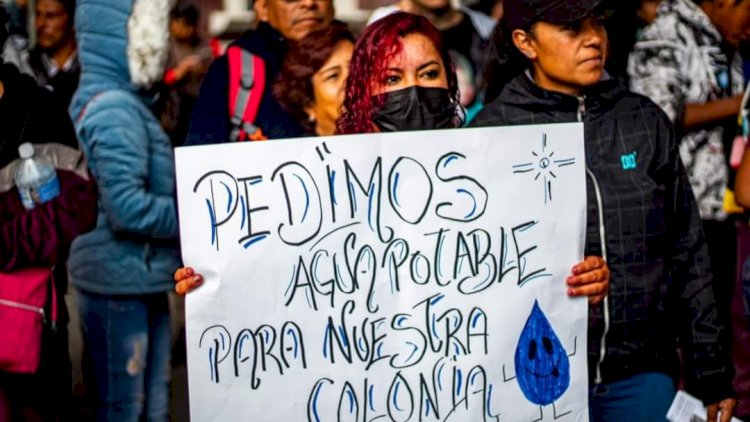 PEDIMOS
AGUA POTABLE
PARA NUESTRA
COLONIA